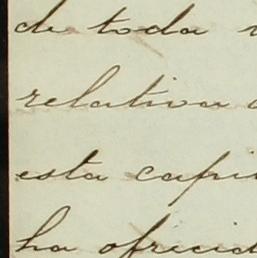 de toda
relativa
esta capi
ha ofrecid